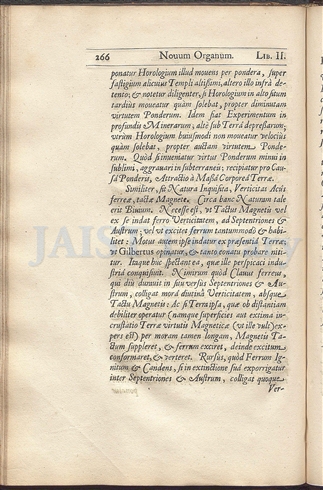 266 Nouum Organum. LIB. II.
ponatur Horologium illud mouens per pondera, super
fastigium alicuius Templi altissimi, altero illo infrà de-
tento; & notetur diligenter, si Horologium in alto situm
tardiùs moueatur quàm solebat, propter diminutam
virtutem Ponderum. Idem fiat Experimentum in
profundis Minerarum, altè sub Terrâ depressarum;
vtrùm Horologium huiusmodi non moueatur velociùs
quàm solebat, propter auctam virtutem Ponde-
rum. Quòd si inueniatur virtus Ponderum minui in
sublimi, aggrauari in subterraneis; recipiatur pro Cau-
sâ Ponderis, Attractio à Massâ Corporeâ Terræ.
Similiter, sit Natura Inquisita, Verticitas Acûs
ferreæ, tactæ Magnete. Circa hanc Naturam tale
erit Biuium. Necesse est, vt Tactus Magnetis vel
ex se indat ferro Verticitatem, ad Septentriones &
Austrum; vel vt excitet ferrum tantummodò & habi-
litet: Motus autem ipse indatur ex præsentiâ Terræ;
vt Gilbertus opinatur, & tanto conatu probare niti-
tur. Itaque huc spectant ea, quæ ille perspicaci indu-
striâ conquisiuit. Nimirum quòd Clauus ferreus,
qui diu durauit in situ versus Septentriones & Au-
strum, colligat morâ diutinâ Verticitatem, absque
Tactu Magnetis: Ac si Terra ipsa, quæ ob distantiam
debiliter operatur (namque superficies aut extima in-
crustatio Terræ virtutis Magneticæ (vt ille vult) ex-
pers est) per moram tamen longam, Magnetis Ta-
ctum suppleret, & ferrum exciret, deinde excitum
conformaret, & verteret. Rursùs, quòd Ferrum Ig-
nitum & Candens, si in extinctione suâ exporrigatur
inter Septentriones & Austrum, colligat quoque
Ver-
JAIST Library